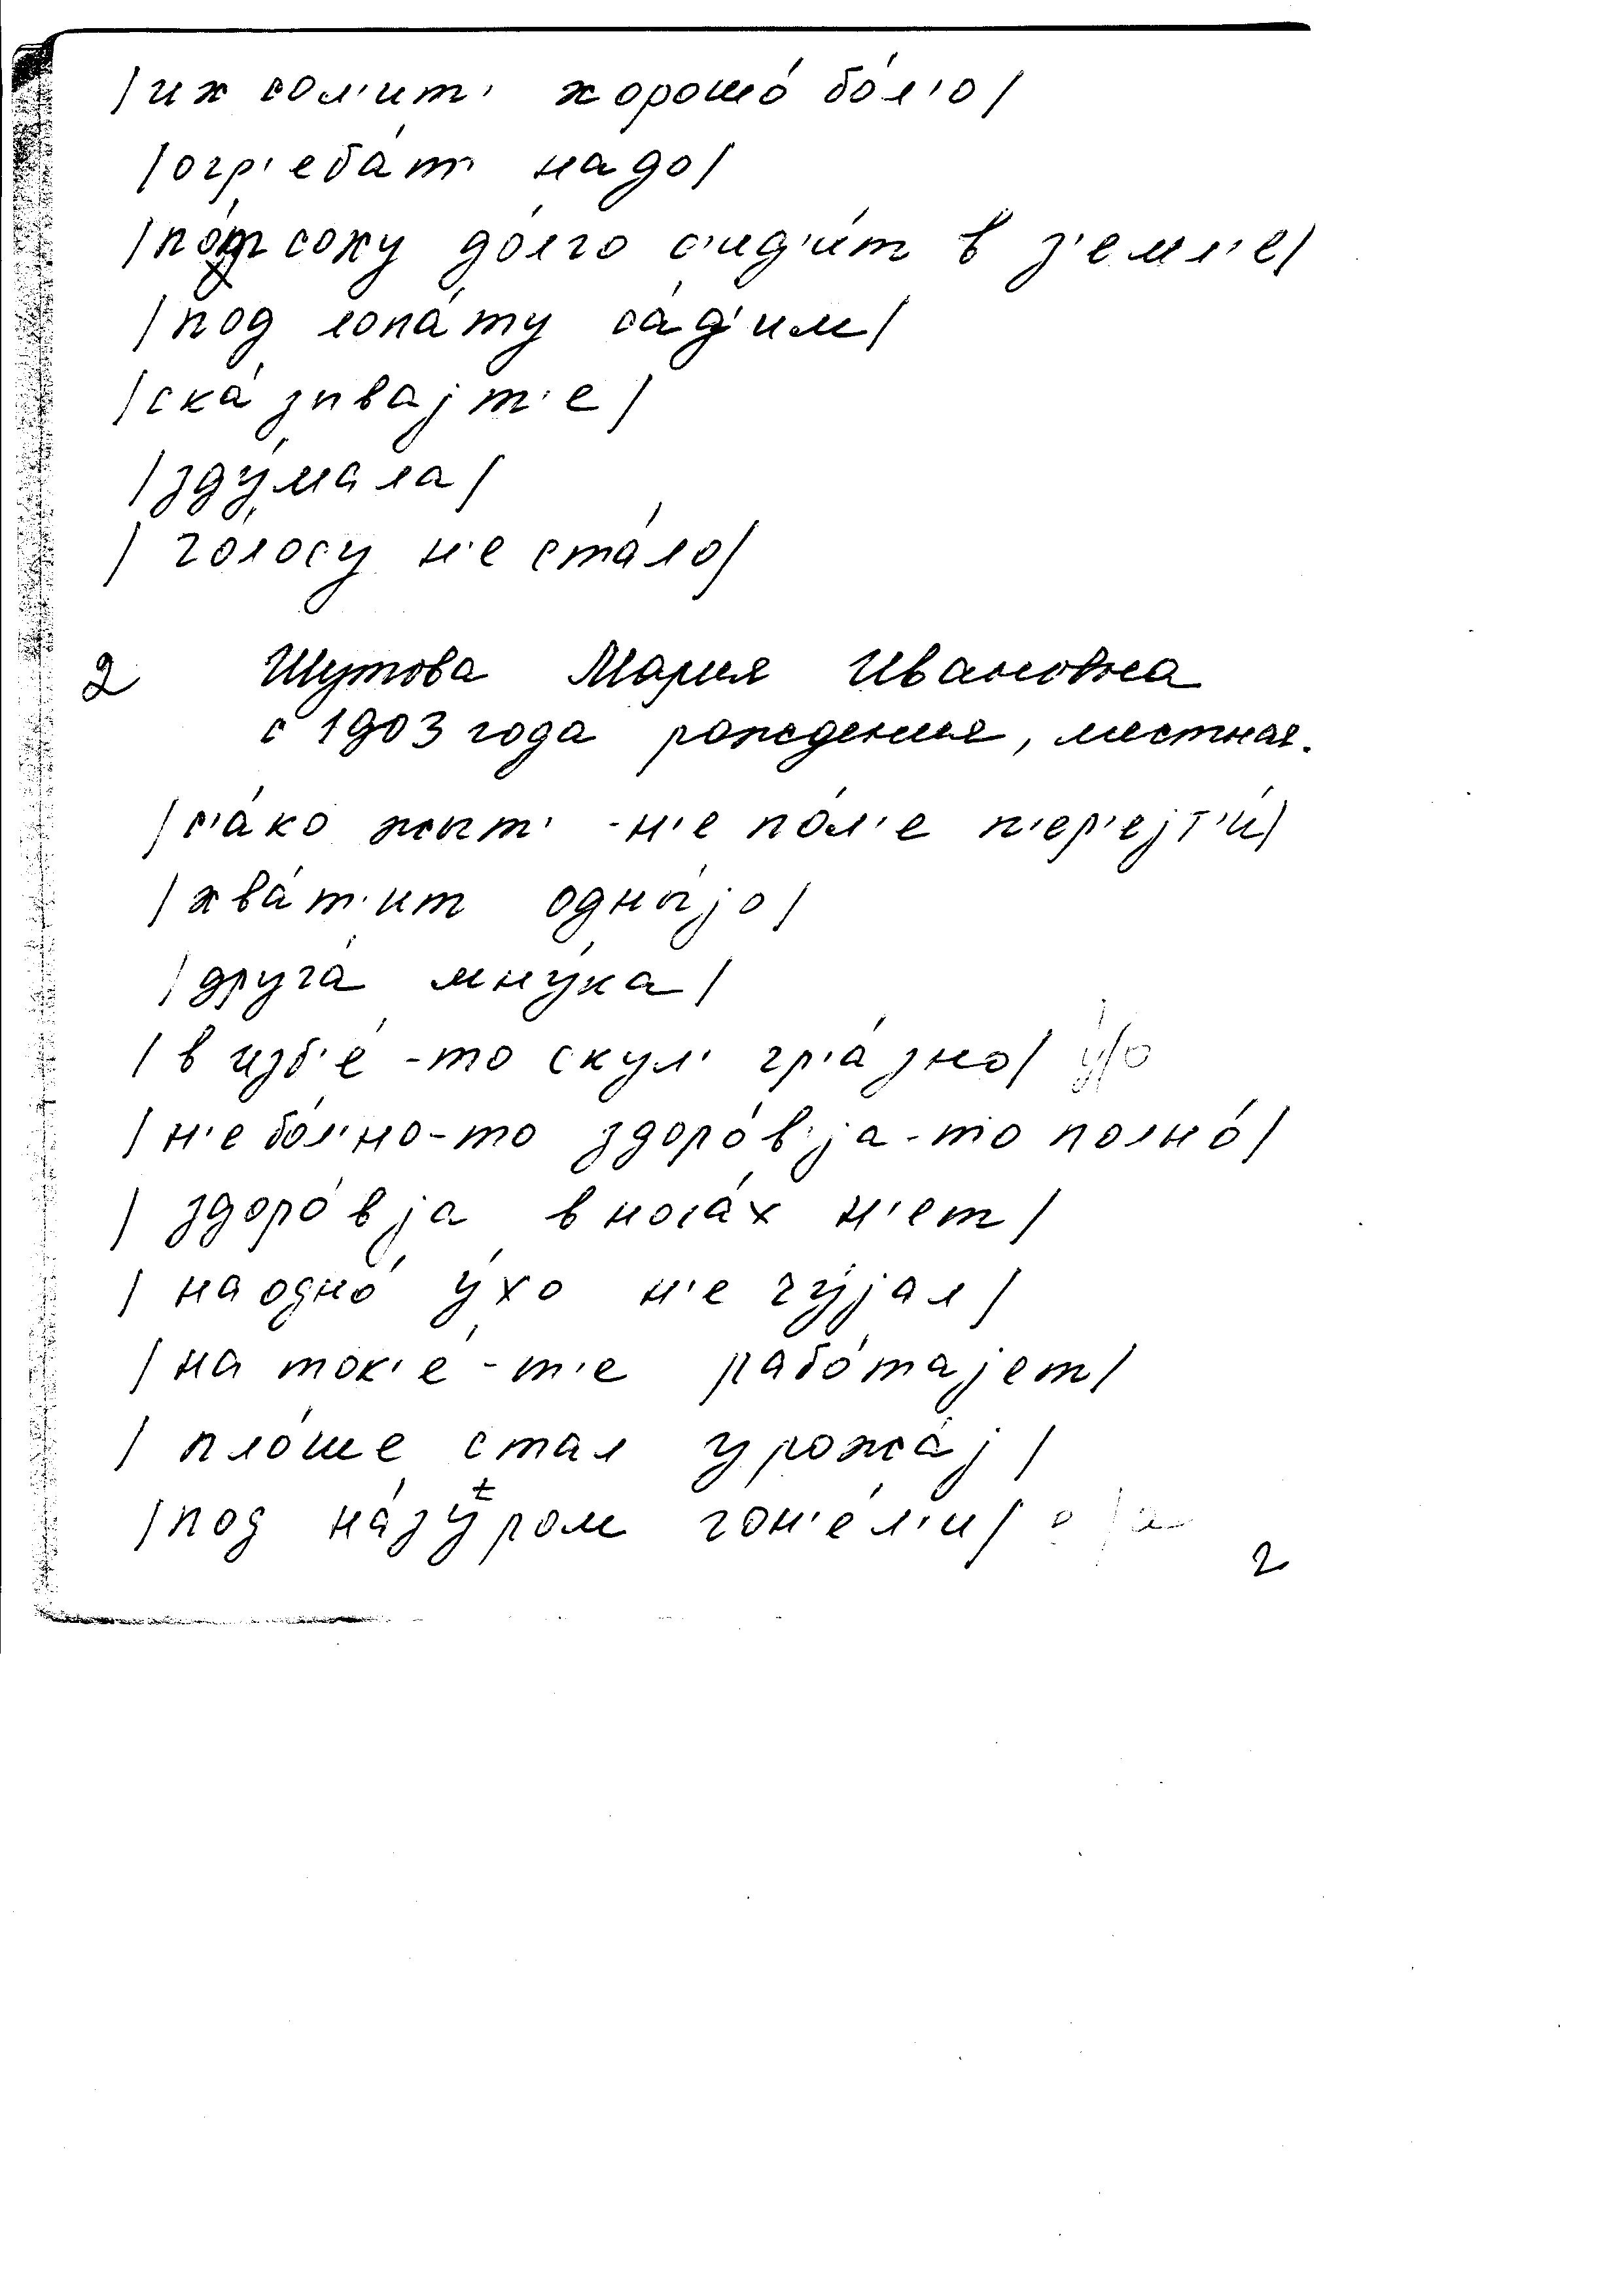 /их сол'ит' хорошо́ бо́л'о/
/огр'еба́т' надо/
/по́т соху до́лго с'ид'и́т в з'емл'е/
/под лопа́ту са́д'им/
/ска́зывајт'е/
/зду́мала/
/го́лосу н'е ста́ло/
2 Шутова Мария Ивановна
с 1903 года рождения, местная.
/с'а́ко жыт' -н'е по́л'е п'ер'ејт'и́/
/хва́т'ит одны́јо/
/друга́ мну́ка/
/в изб'е́-то скул' гр'а́зно/ у́/о
/н'е бо́л'но-то здоро́в'ја-то полно́/
/здоро́вја в нога́х н'ет/
/на одно́ у́хо н'е чу́јал/
/на ток'е́-т'е рабо́тајет/
/пло́ше стал урожа́ј/
/под на́зу́ром гон'е́л'и/ о/а
2